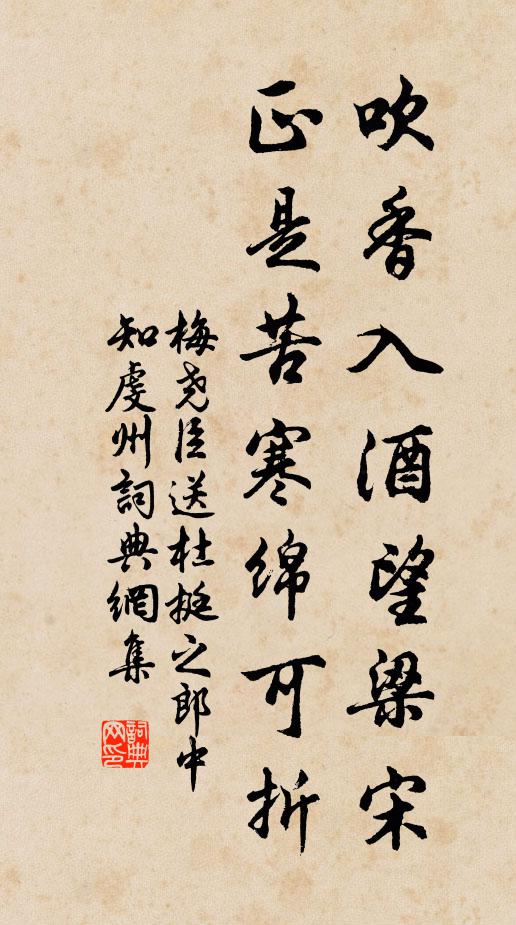 吹香入酒望梁宋
正是苦寒綿可折
梅堯臣送杜挺之郎中
知虔州詞典網集
詞典
网印